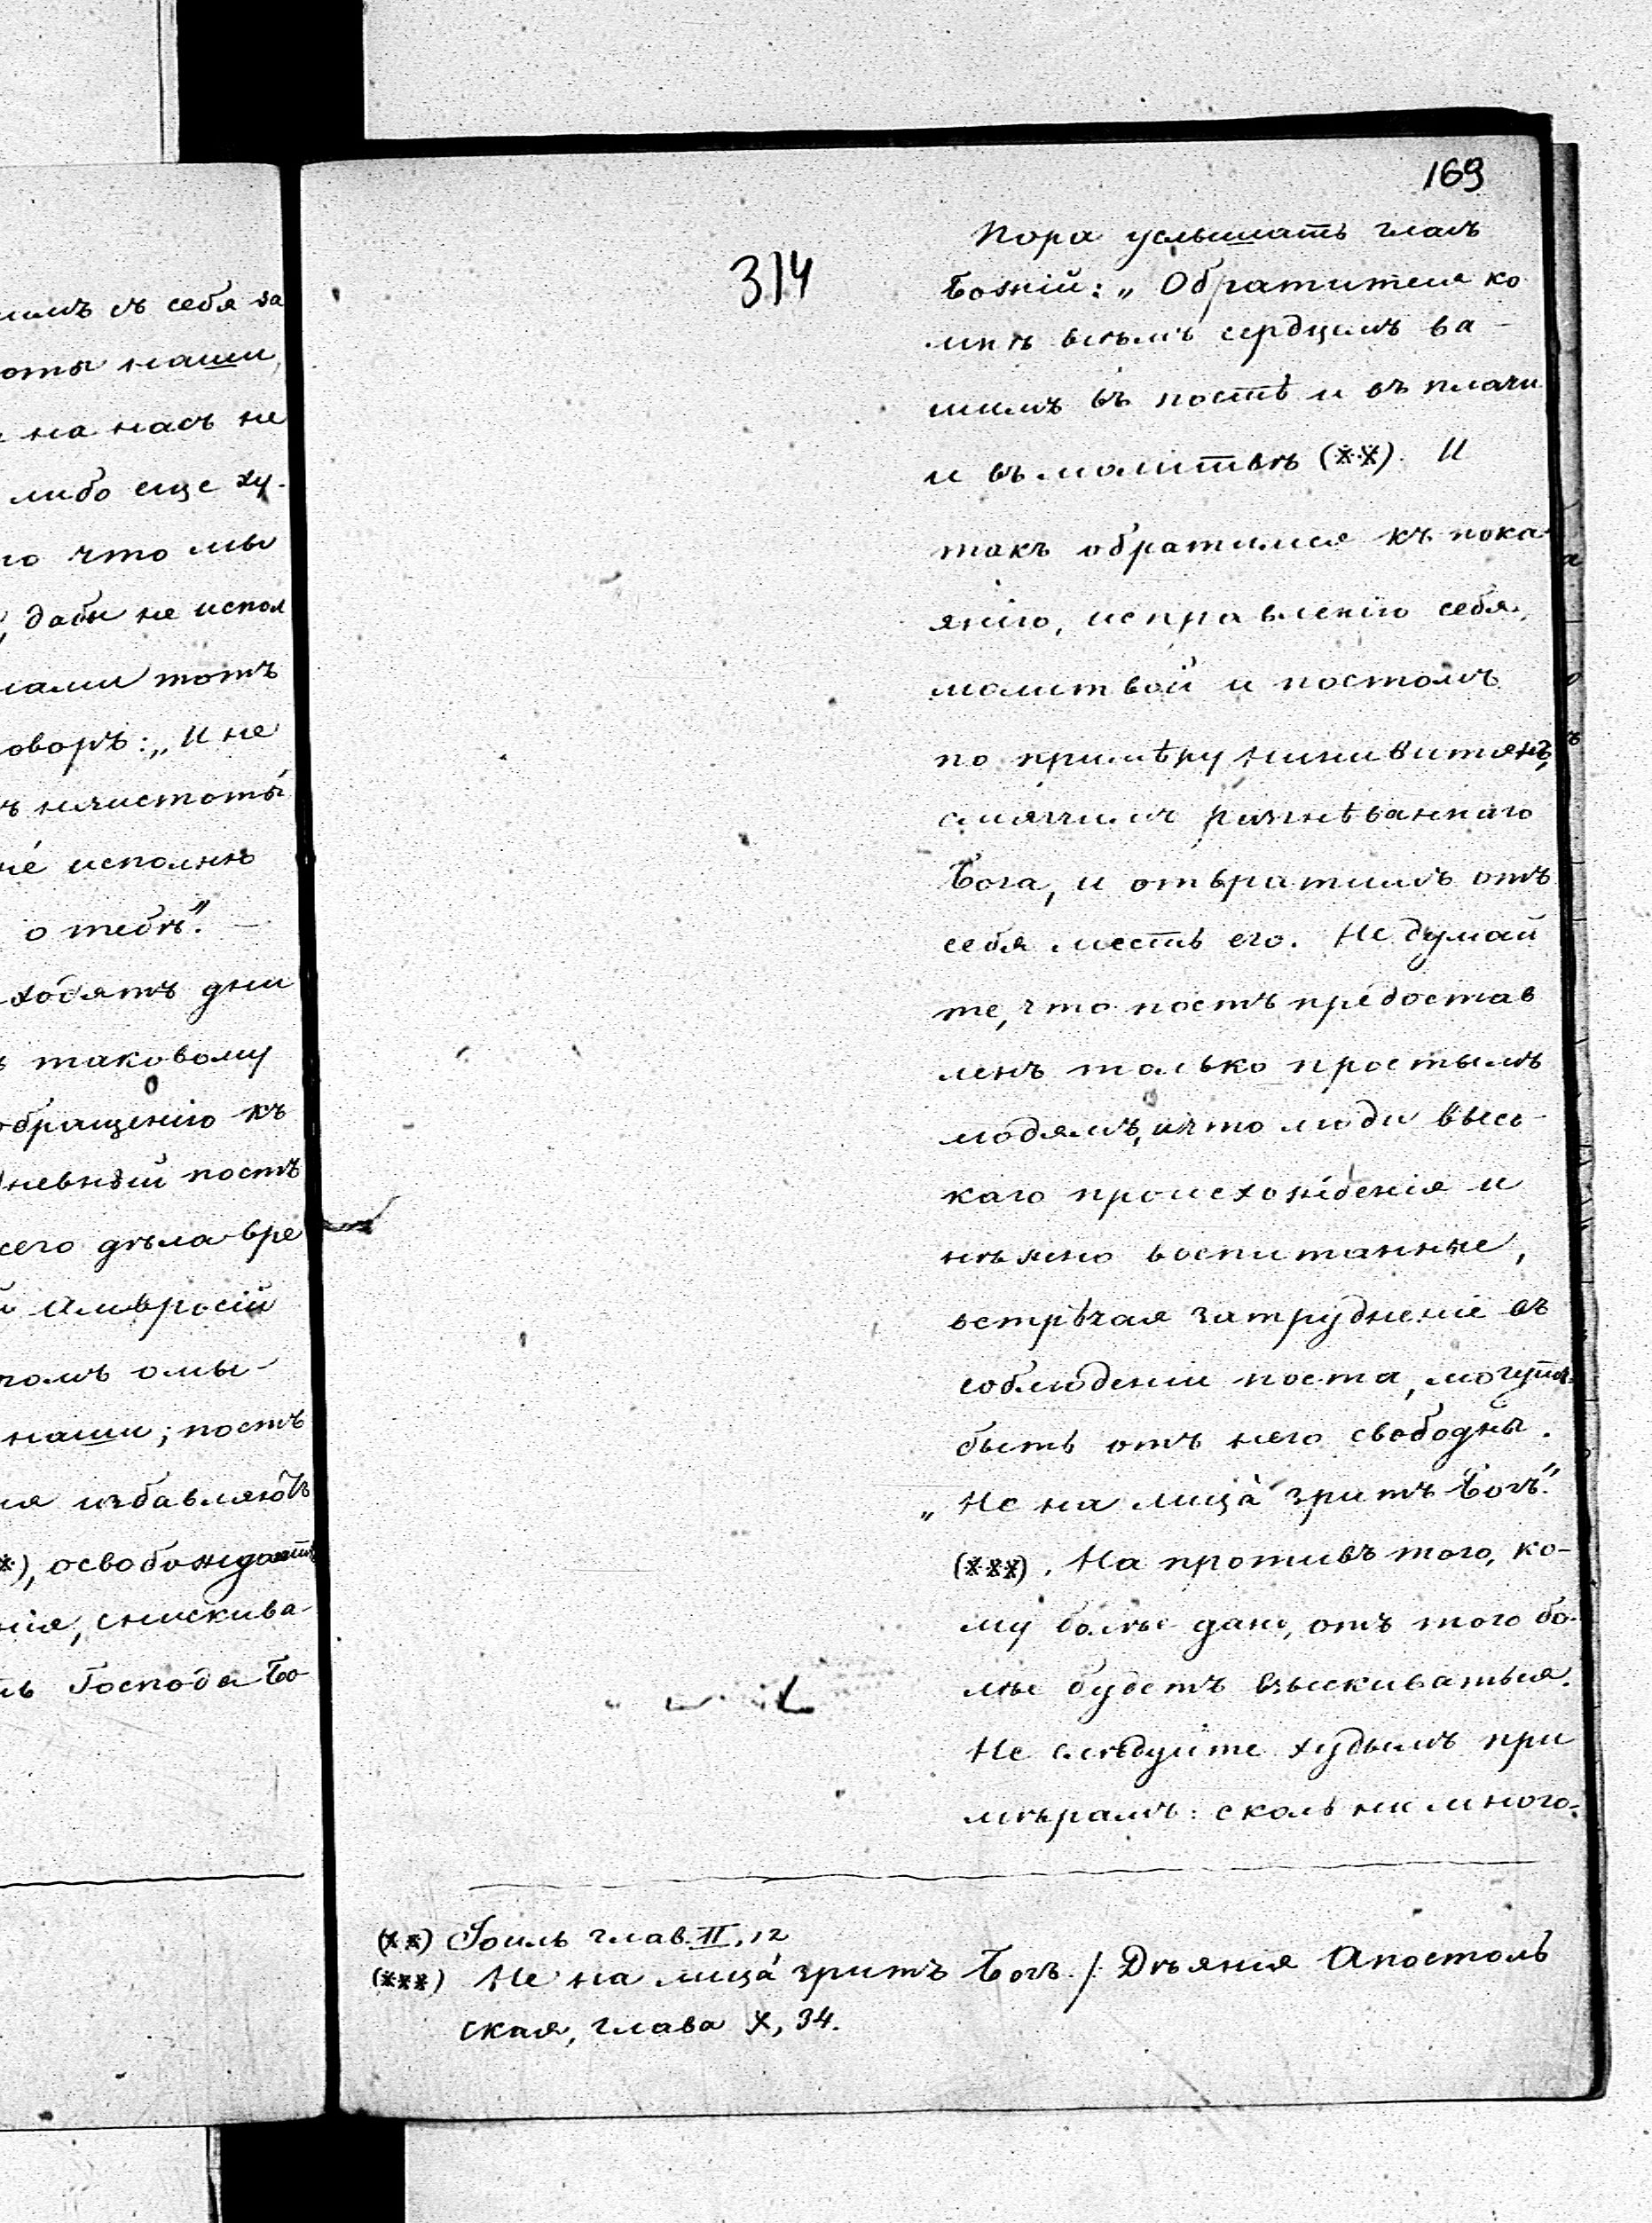 имъ съ себя за
оты наши,
на насъ не
либо еще ху-
го что мы
, дабы не испол
нами тотъ
оворъ: „И не
ъ нечистоты́
не́ исполню
о тебѣ“. —
ходятъ дни
ъ таковому
обращенію къ
дневный постъ
сего дѣла вре
й Амвросій
томъ омы-
наши; постъ
ія избавляютъ
*), освобождаетъ
нія, снискива-
ль Господа Бо-
169
314
Пора услышать гласъ
Божій: „Обратитеся ко
мнѣ всѣмъ сердцемъ ва-
шимъ въ постѣ и въ плачи
и въ молитвѣ (**). И
такъ обратимся къ пока-
янію, исправленію себя,
молитвой и постомъ
по примѣру Ниневитянъ,
смягчимъ разгнѣваннаго
Бога, и отвратимъ отъ
себя месть его. Не думай
те, что постъ предостав
ленъ только простымъ
людямъ, и что люди высо-
каго происхожденія и
нѣжно воспитанные,
встрѣчая затрудненіе въ
соблюденіи поста, могутъ
быть отъ него свободны.
„Не на лица́ зритъ Богъ“.
(***). На противъ того, ко-
му болѣе дано, отъ того бо-
лѣе будетъ взыскиваться.
Не слѣдуйте худымъ при
мѣрамъ: сколь ни много-
(**) Іоиль глав. II, 12
(***) Не на лица́ зритъ Богъ. / Дѣянія Апостоль
ская, глава X, 34.